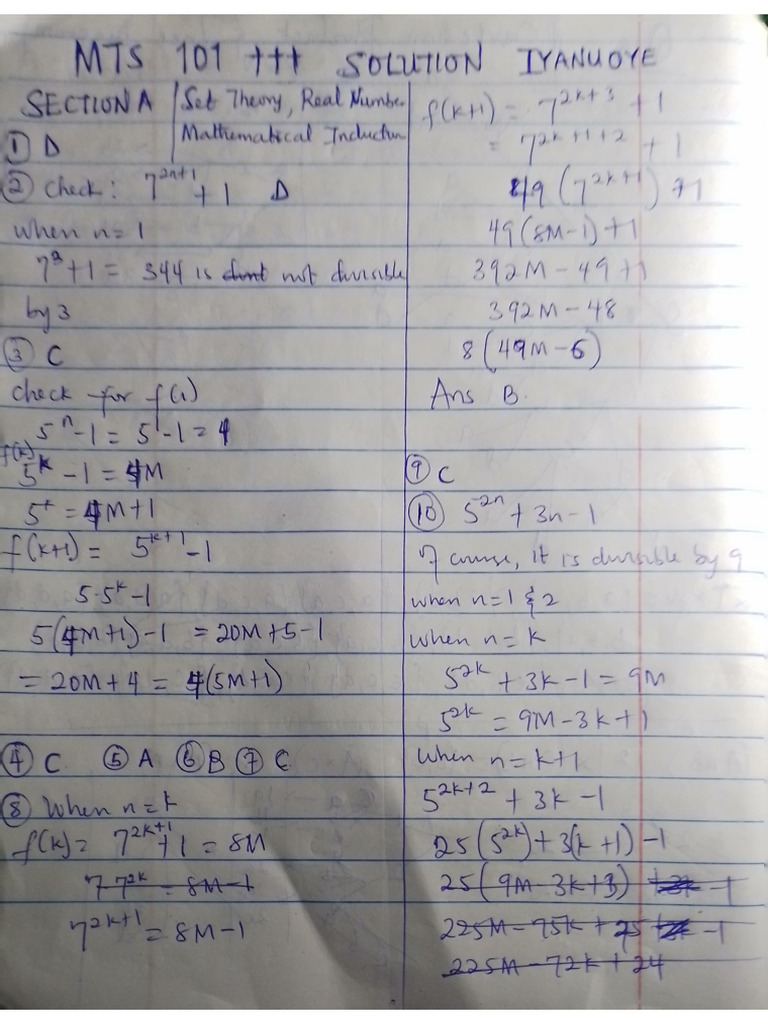 MTS 101 +++ SOLUTION IYANUOYE
SECTION A | Set Theory, Real Number
Mathematical Induction
① D
② Check: 7^{2n+1} + 1 D
when n=1
7³+1 = 344 is not divisible
by 3
③ C
Check for f(1)
5^n - 1 = 5^1 - 1 = 4
f(k)
5^k - 1 = 4M
5^k = 4M + 1
f(k+1) = 5^{k+1} - 1
5·5^k - 1
5(4M+1) - 1 = 20M + 5 - 1
= 20M + 4 = 4(5M+1)
④ C ⑤ A ⑥ B ⑦ C
⑧ When n=k
f(k) = 7^{2k+1} + 1 = 8M
7·7^{2k} = 8M - 1
7^{2k+1} = 8M - 1
f(k+1) = 7^{2k+3} + 1
= 7^{2k+1+2} + 1
49(7^{2k+1}) + 1
49(8M-1) + 1
392M - 49 + 1
392M - 48
8(49M - 6)
Ans B.
⑨ C
⑩ 5^{2n} + 3n - 1
Of course, it is divisible by 9
when n=1 & 2
when n=k
5^{2k} + 3k - 1 = 9M
5^{2k} = 9M - 3k + 1
When n=k+1
5^{2k+2} + 3k - 1
25(5^{2k}) + 3(k+1) - 1
25(9M - 3k + 3) + 3k - 1
225M - 75k + 75 - 1
225M - 72k + 24